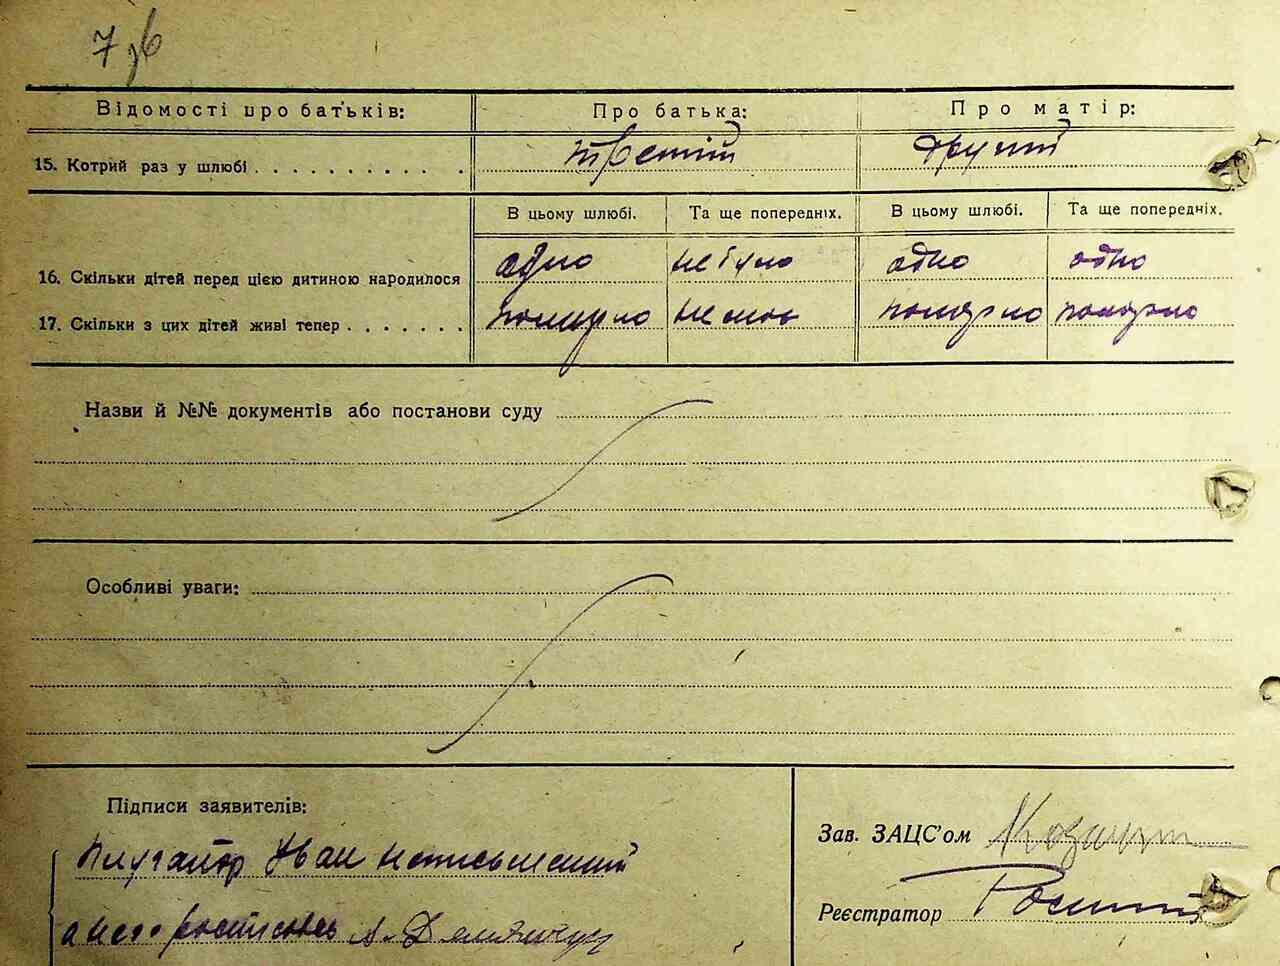 Відомості про батьків: Про батька: Про матір:
15. Котрий раз у шлюбі третій другий
В цьому шлюбі. Та ще попередніх. В цьому шлюбі. Та ще попередніх.
16. Скільки дітей перед цією дитиною народилося одно не було одно одно
17. Скільки з цих дітей живі тепер померло померло померло
Назви й №№ документів або постанови суду
Особливі уваги:
Підписи заявителів:
Зав. ЗАЦС'ом
Плугатор Іван неписьменний
Реєстратор